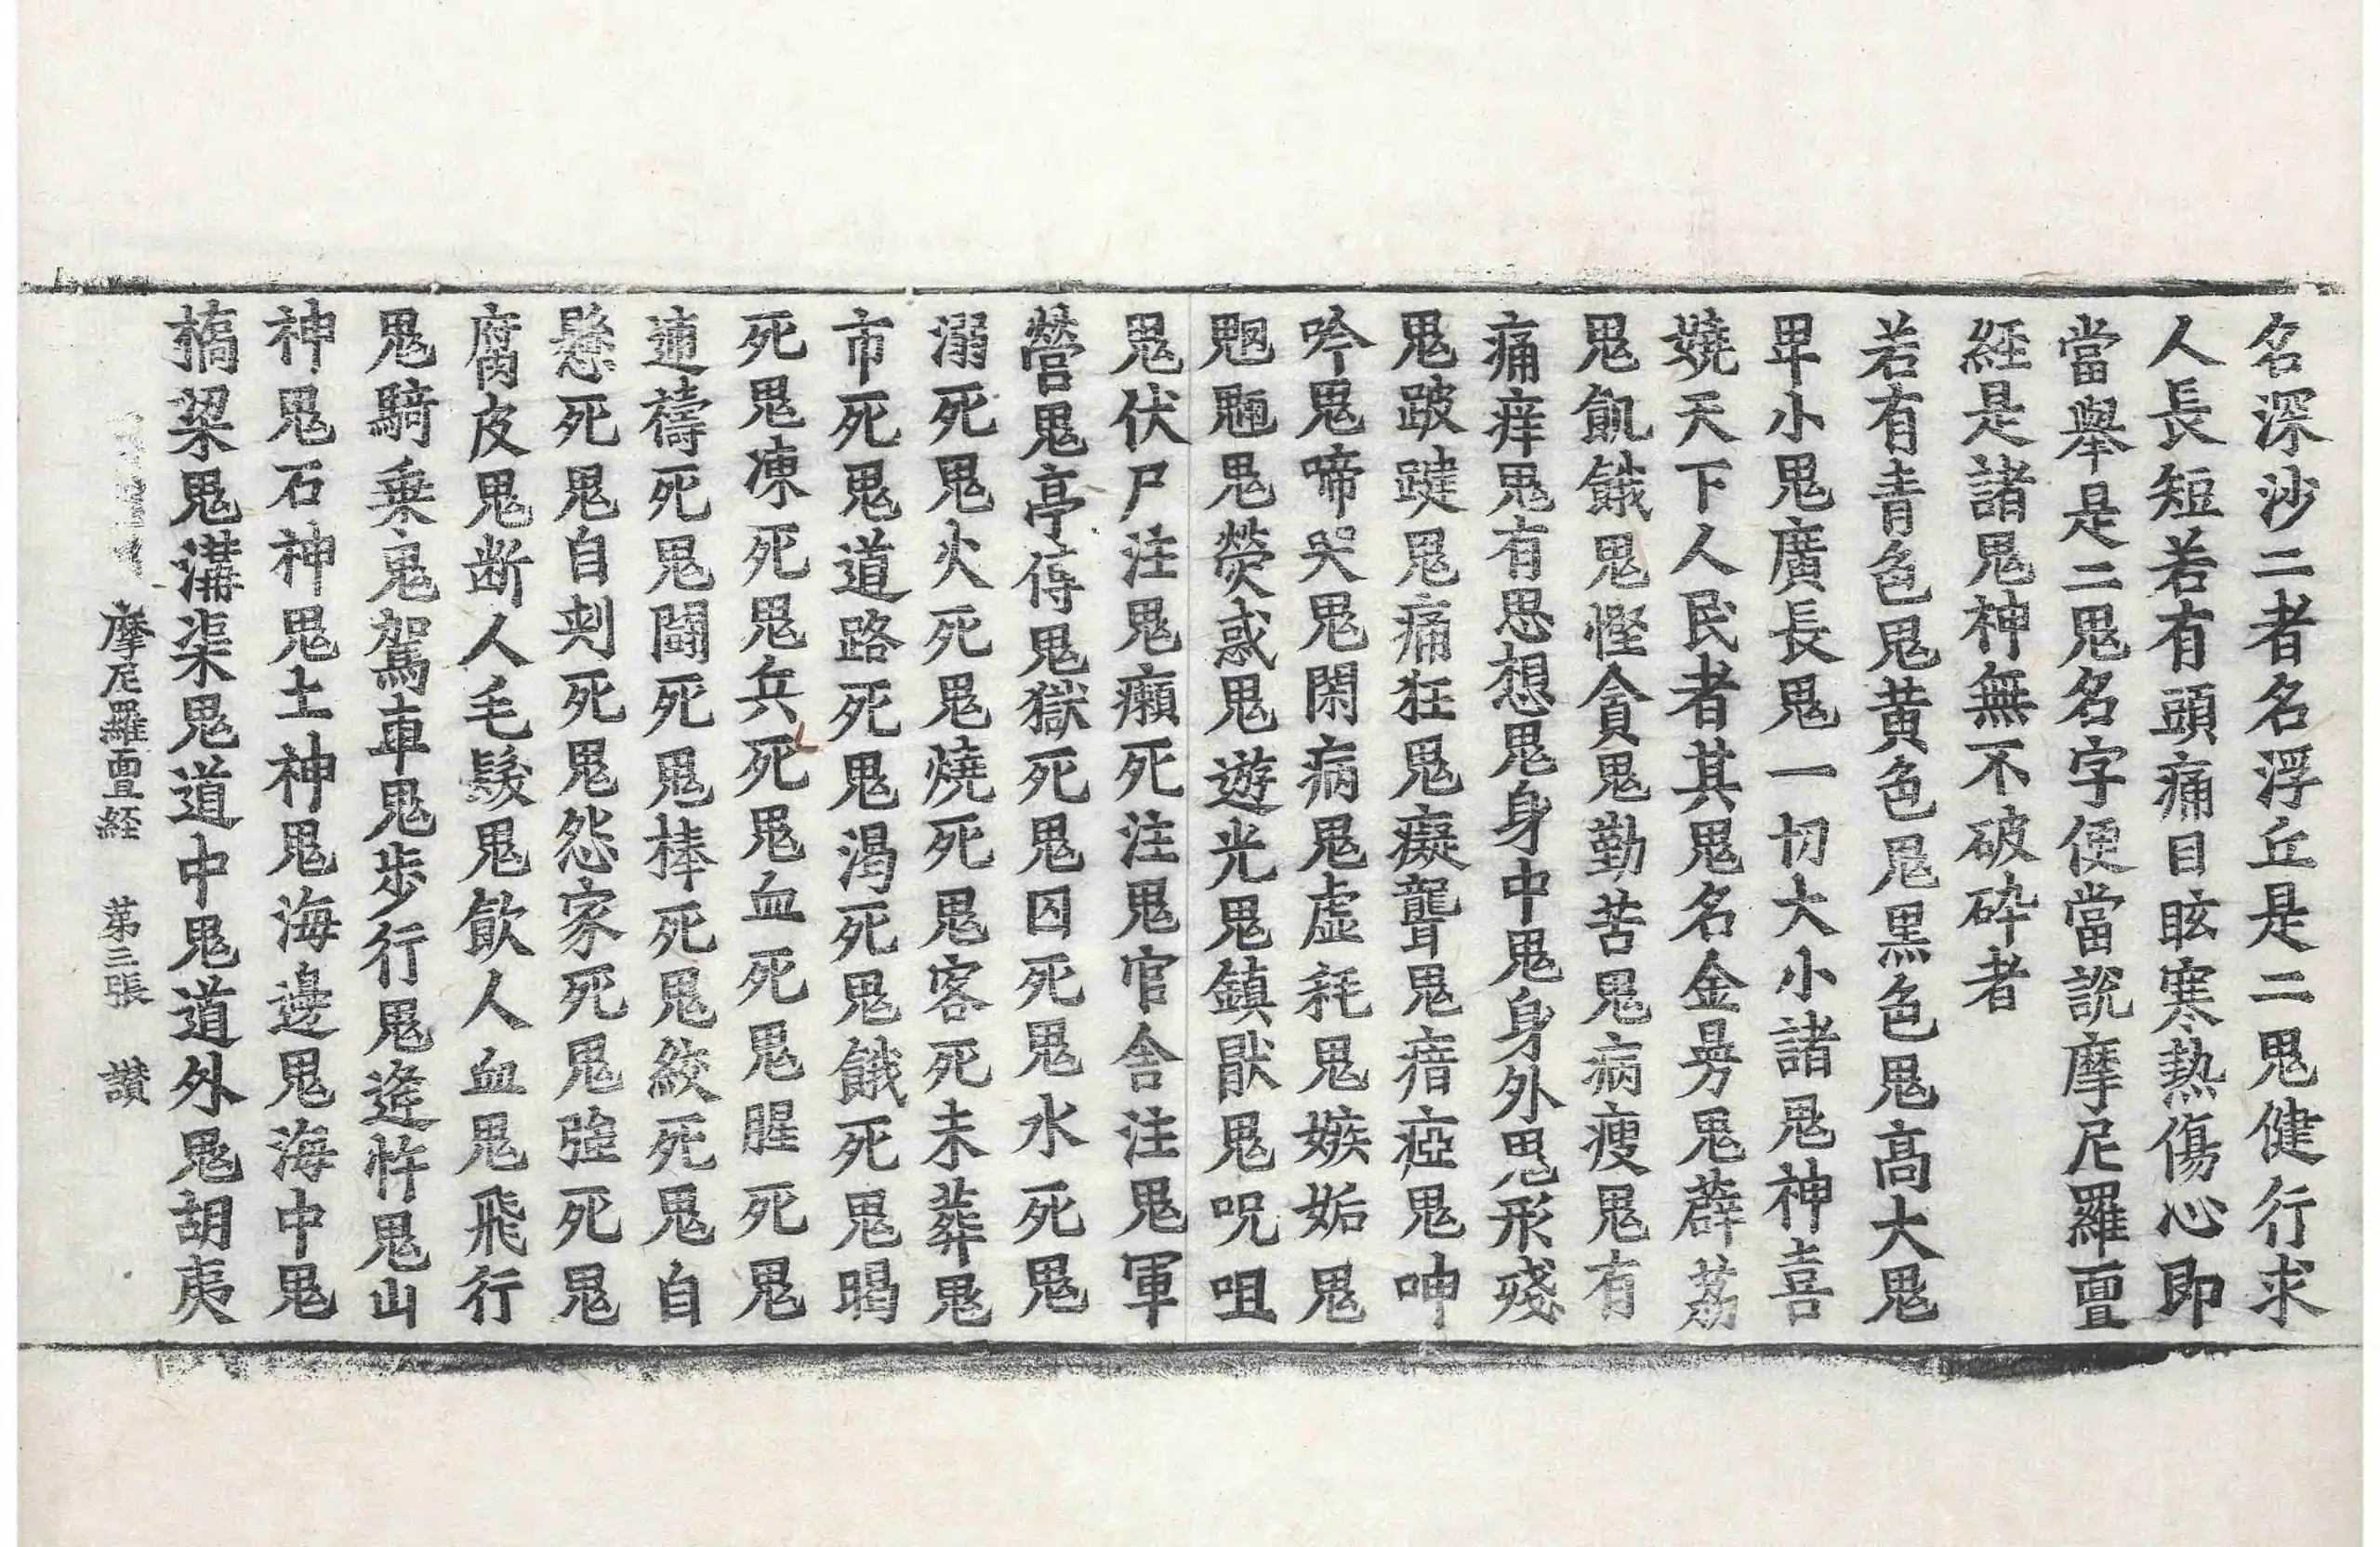 名深沙二者名浮丘是二鬼健行求
人長短若有頭痛目眩寒熱傷心即
當舉是二鬼名字便當說摩尼羅亶
経是諸鬼神無不破碎者
若有青色鬼黃色鬼黑色鬼高大鬼
卑小鬼廣長鬼一切大小諸鬼神喜
嬈天下人民者其鬼名金昘鬼薜荔
鬼飢餓鬼慳貪鬼勤苦鬼病瘦鬼有
痛痒鬼有思想鬼身中鬼身外鬼形殘
鬼跛躄鬼痛狂鬼癡聾鬼瘖瘂鬼呻
吟鬼啼哭鬼閑病鬼虛耗鬼嫉妬鬼
魍魎鬼熒惑鬼遊光鬼鎮猒鬼呪咀
鬼伏尸注鬼癩死注鬼官舍注鬼軍
營鬼亭待鬼獄死鬼囚死鬼水死鬼
溺死鬼火死鬼燒死鬼客死未葬鬼
市死鬼道路死鬼渴死鬼餓死鬼暍
死鬼凍死鬼兵死鬼血死鬼腥死鬼
逋禱死鬼鬪死鬼棒死鬼絞死鬼自
懸死鬼自刺死鬼怨家死鬼強死鬼
腐皮鬼断人毛髮鬼飲人血鬼飛行
鬼騎乗鬼駕車鬼步行鬼逢忤鬼山
神鬼石神鬼土神鬼海邊鬼海中鬼
槗梁鬼溝渠鬼道中鬼道外鬼胡夷
摩尼羅亶経 第三張 讃